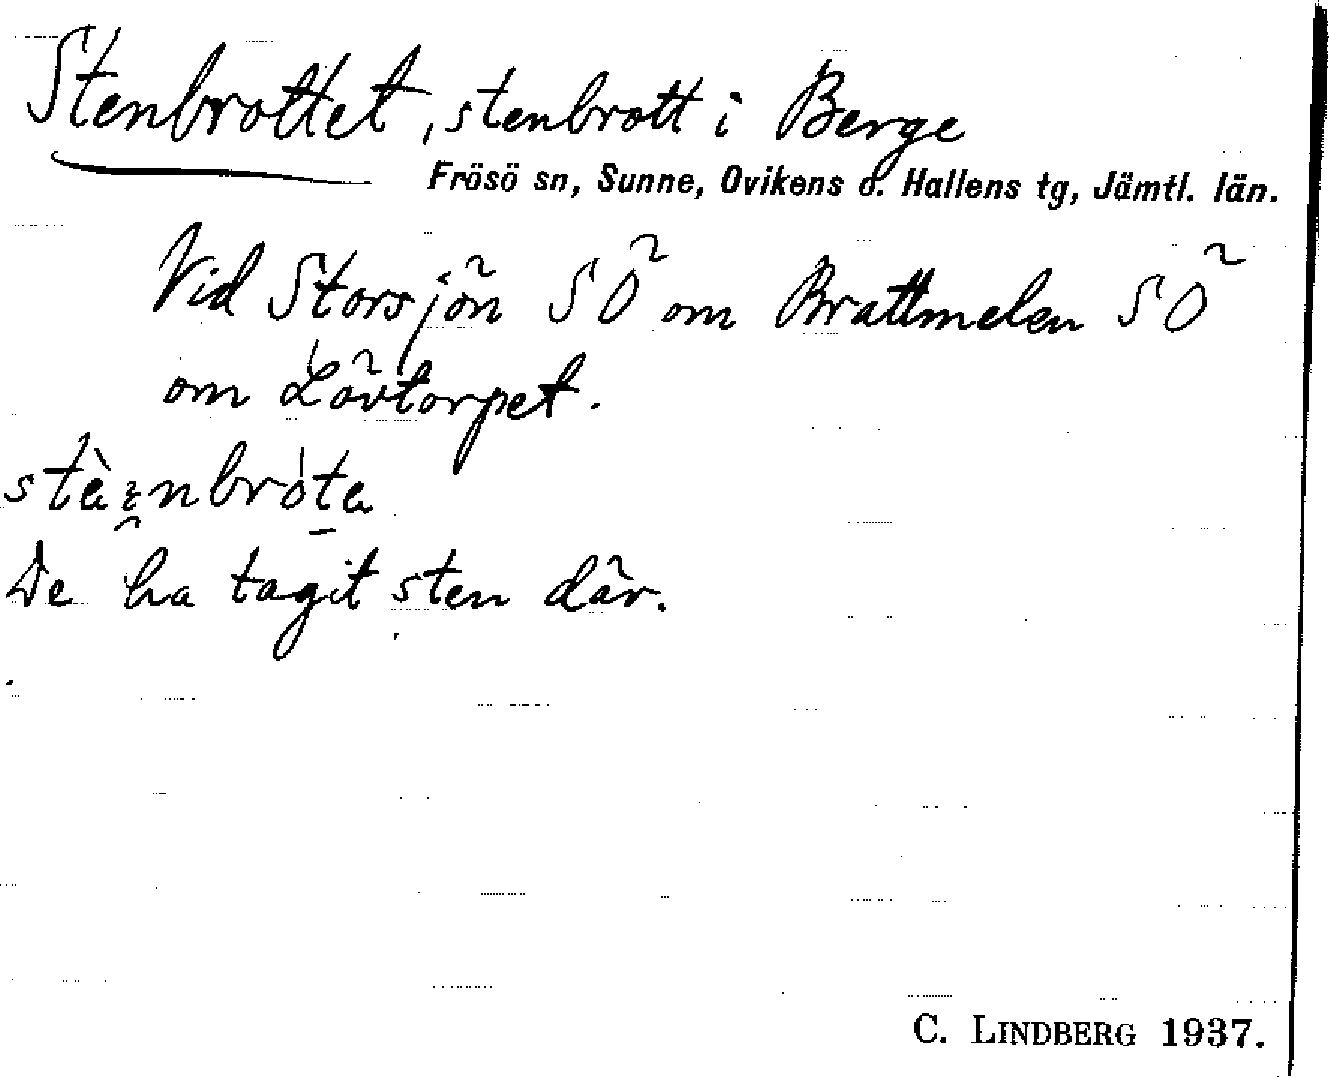 Stenbrottet, stenbrott i Berge
Frösö sn, Sunne, Ovikens o. Hallens tg, Jämtl. län.
Vid Storsjön SÖ om Brattmelen SÖ
om Lövtorpet.
De ha tagit sten där.
C. LINDBERG 1937.